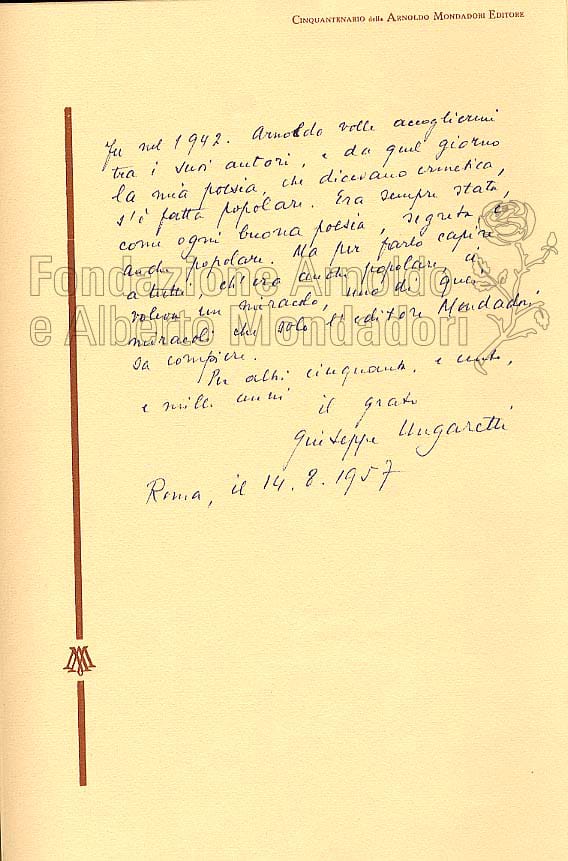 CINQUANTENARIO della ARNOLDO MONDADORI EDITORE
Fu nel 1942. Arnoldo volle accogliermi
tra i suoi autori, e da quel giorno
la mia poesia, che dicevano ermetica,
s'è fatta popolare. Era sempre stata,
come ogni buona poesia, segreta, e
anche popolare. Ma per farlo capire
a tutti, ch'era anche popolare, ci
voleva un miracolo, uno di quei
miracoli che solo l'editore Mondadori
sa compiere.
Per altri cinquanta, e cento,
e mille anni
il grato
Giuseppe Ungaretti
Roma, il 14.8.1957
Fondazione Arnoldo
e Alberto Mondadori